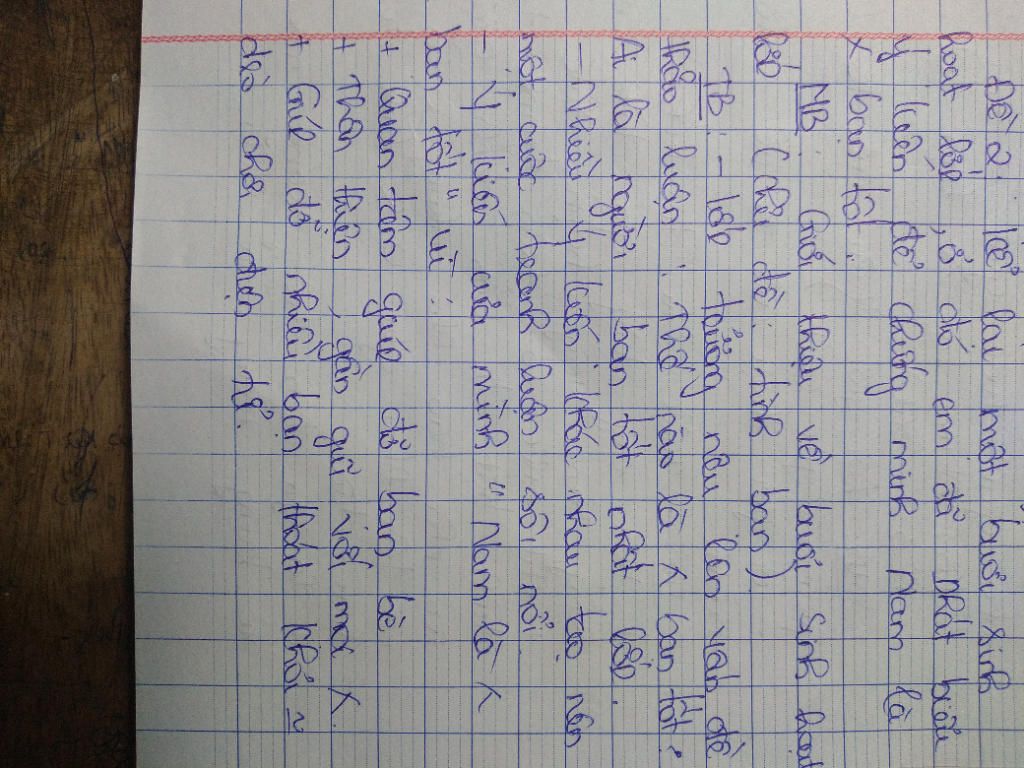 Đề 2: kể lại một buổi sinh
hoạt lớp, ở đó em đã phát biểu
ý kiến để chứng minh Nam là
x bạn tốt.
MB: Giới thiệu về buổi sinh hoạt
lớp (chủ đề: tình bạn)
TB: - lớp trưởng nêu lên vấn đề
thảo luận: Thế nào là x bạn tốt?
Ai là người bạn tốt nhất lớp.
- Nhiều ý kiến khác nhau tạo nên
một cuộc tranh luận sôi nổi.
- Ý kiến của mình "Nam là x
bạn tốt" vì:
+ Quan tâm giúp đỡ bạn bè
+ Thân thiện, gần gũi với mọi x.
+ Giúp đỡ nhiều bạn thoát khỏi ~
trò chơi điện tử.